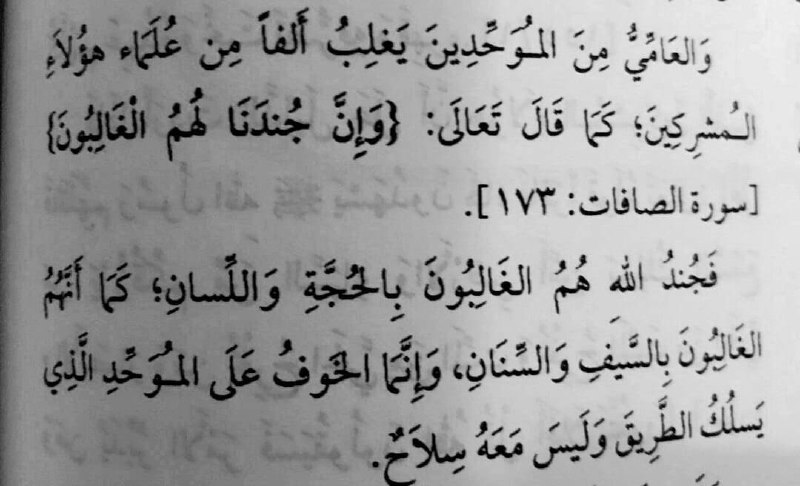 وَالعَامِّيُّ مِنَ المُوَحِّدِينَ يَغلِبُ أَلفاً مِن عُلَمَاءِ هؤُلاَءِ
المُشرِكِينَ؛ كَمَا قَالَ تَعَالَى: {وَإِنَّ جُندَنَا لَهُمُ الْغَالِبُونَ}
[سورة الصافات: ١٧٣].
فَجُندُ اللهِ هُمُ الغَالِبُونَ بِالحُجَّةِ وَاللِّسانِ؛ كَمَا أَنَّهُمُ
الغَالِبُونَ بِالسَّيفِ وَالسِّنَانِ، وَإِنَّمَا الخَوفُ عَلَى المُوَحِّدِ الَّذِي
يَسلُكُ الطَّرِيقَ وَلَيسَ مَعَهُ سِلاَحٌ.